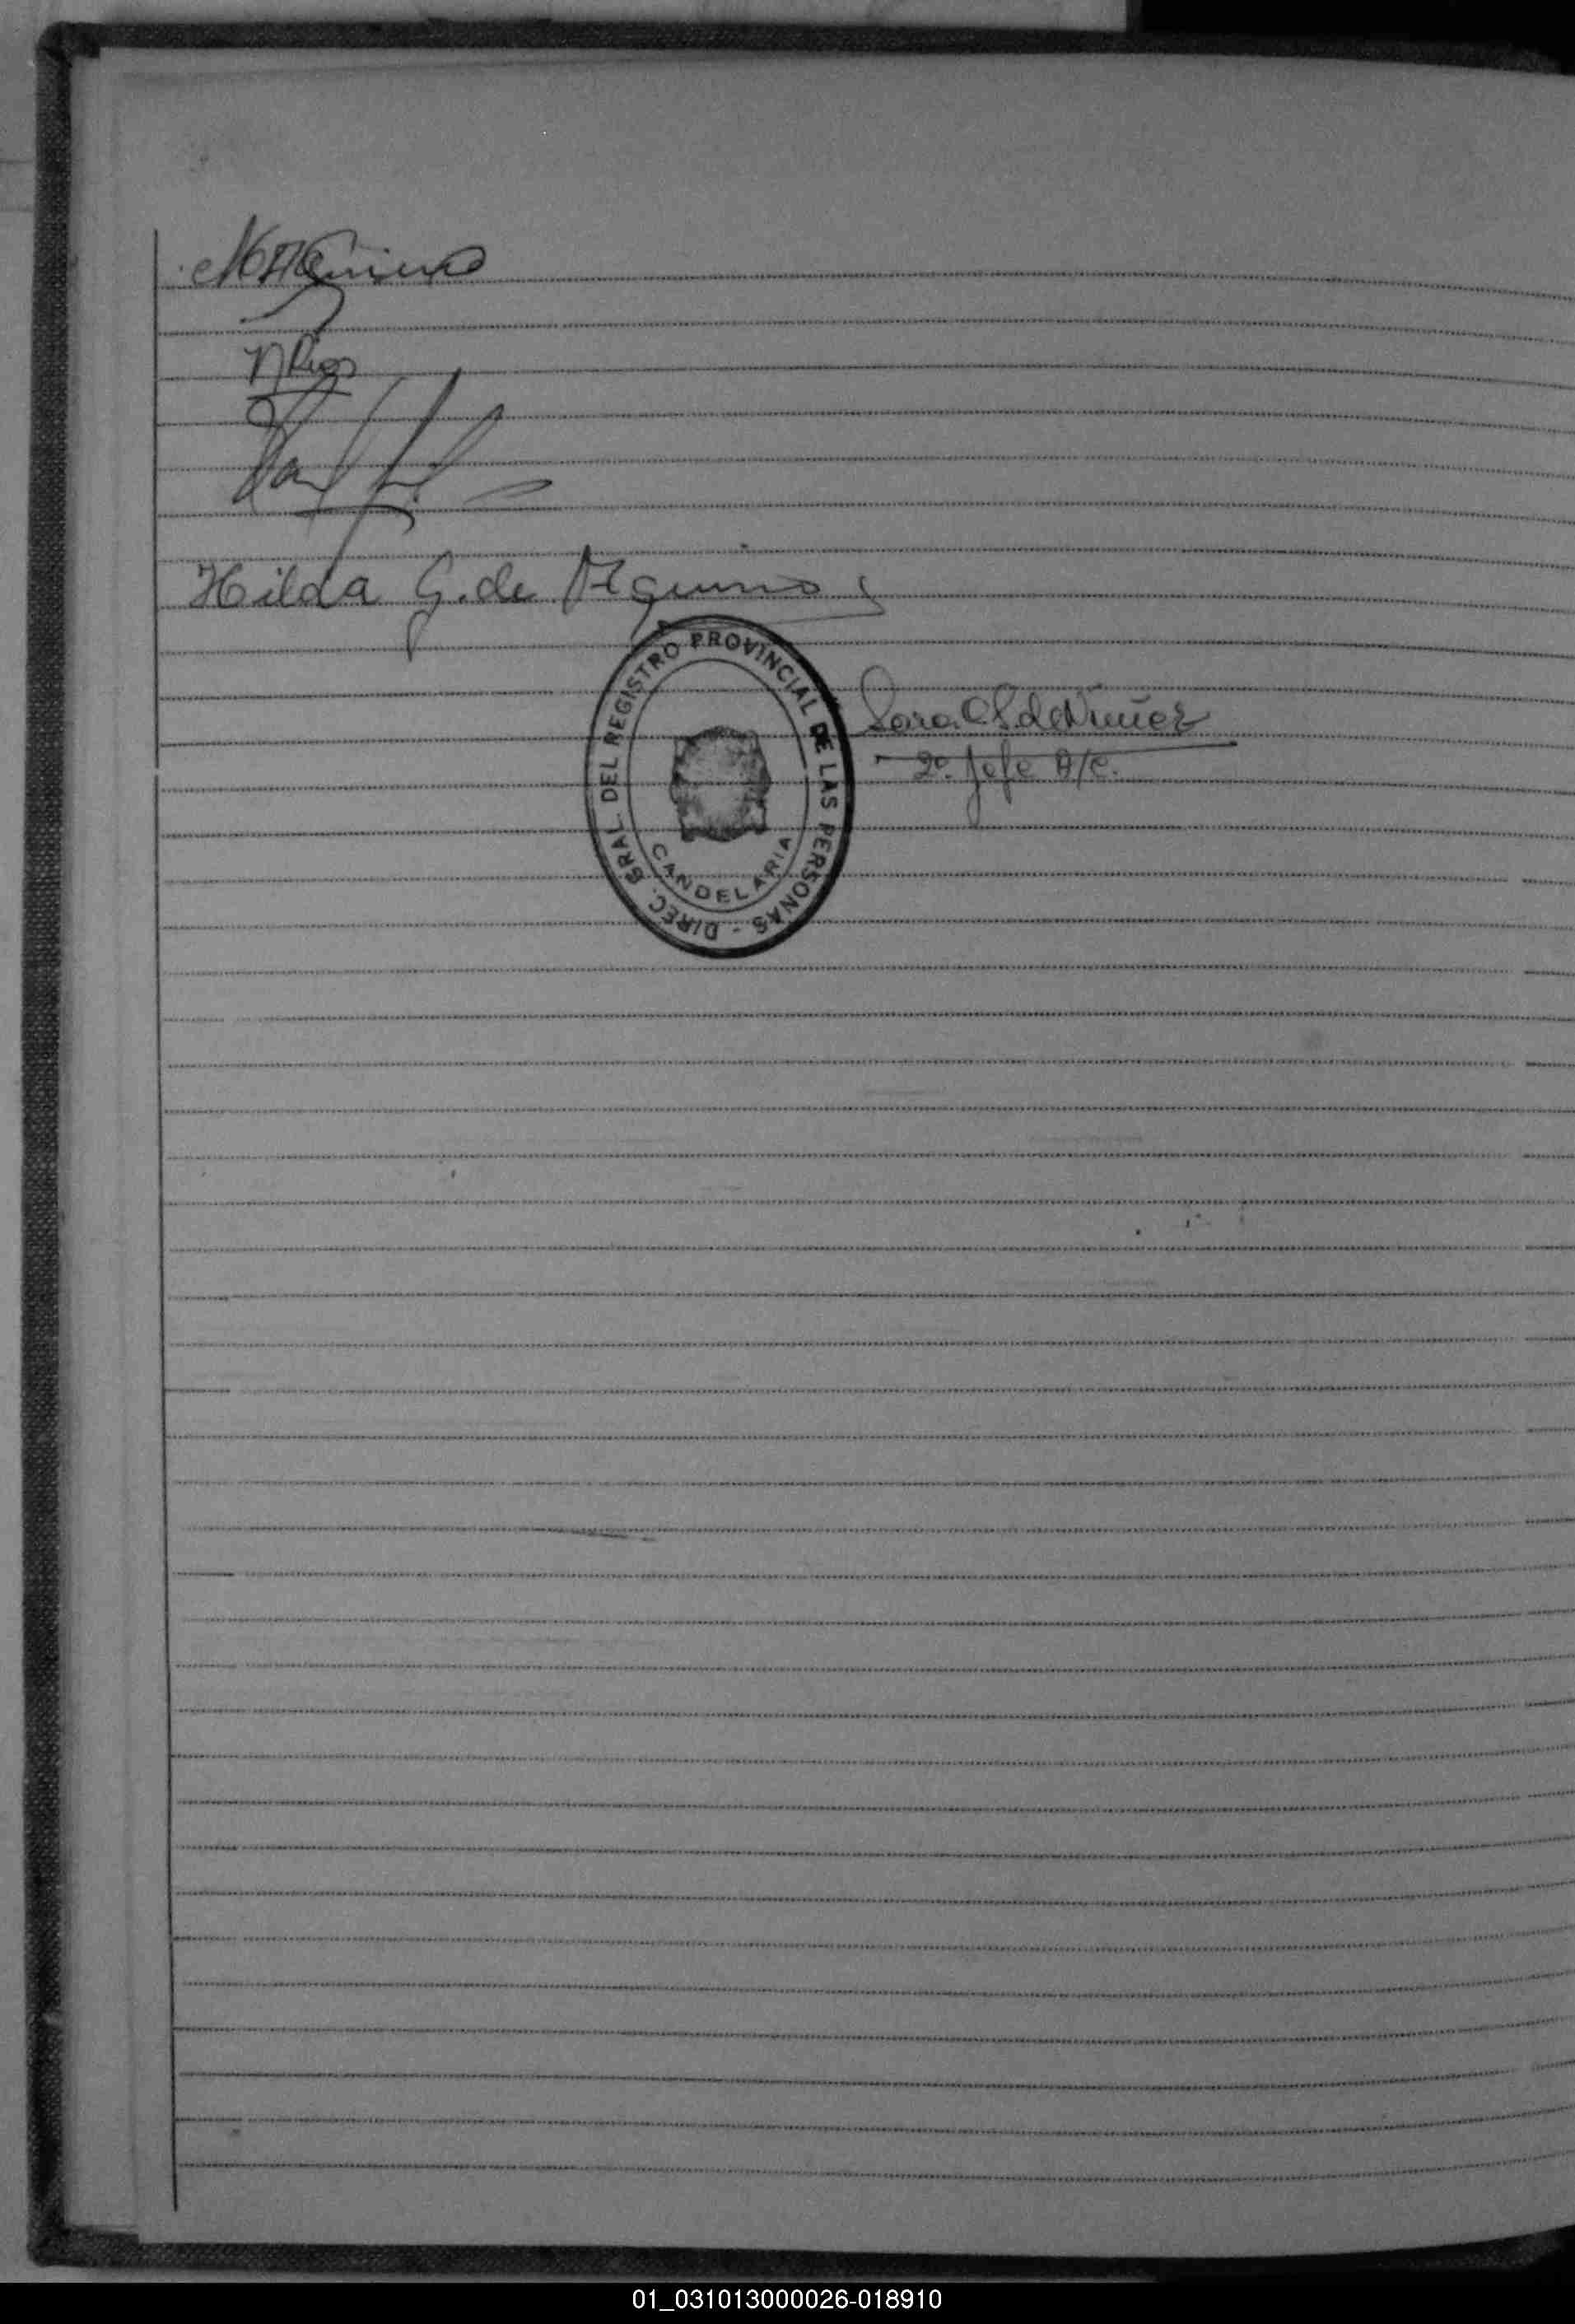 N Rios
Hilda G. de Aquino
DIREC. GRAL. DEL REGISTRO PROVINCIAL DE LAS PERSONAS -
CANDELARIA
Sara de Nuñez
2º Jefe A/C.
01_031013000026-018910